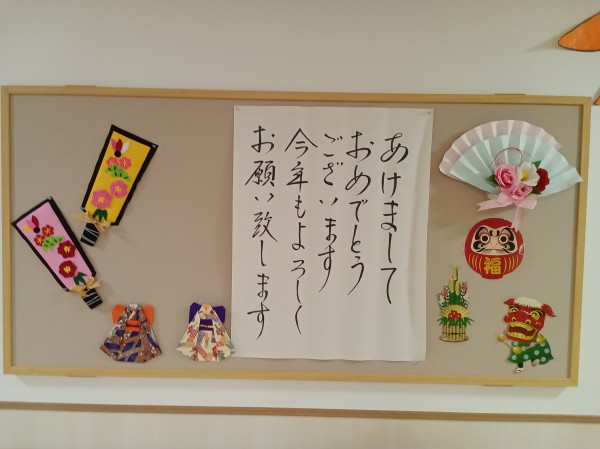 あけまして
おめでとう
ございます
今年もよろしく
お願い致します
福